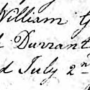 William G
Durrant
d July 2nd